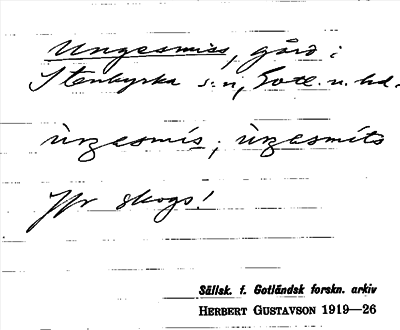 Ungesmiss, gård i
Stenkyrka s:n, Gotl. n. hd.
ùŋesmìs; ùŋesmits
Jfr skogs!
Sällsk. f. Gotländsk forskn. arkiv
HERBERT GUSTAVSON 1919—26